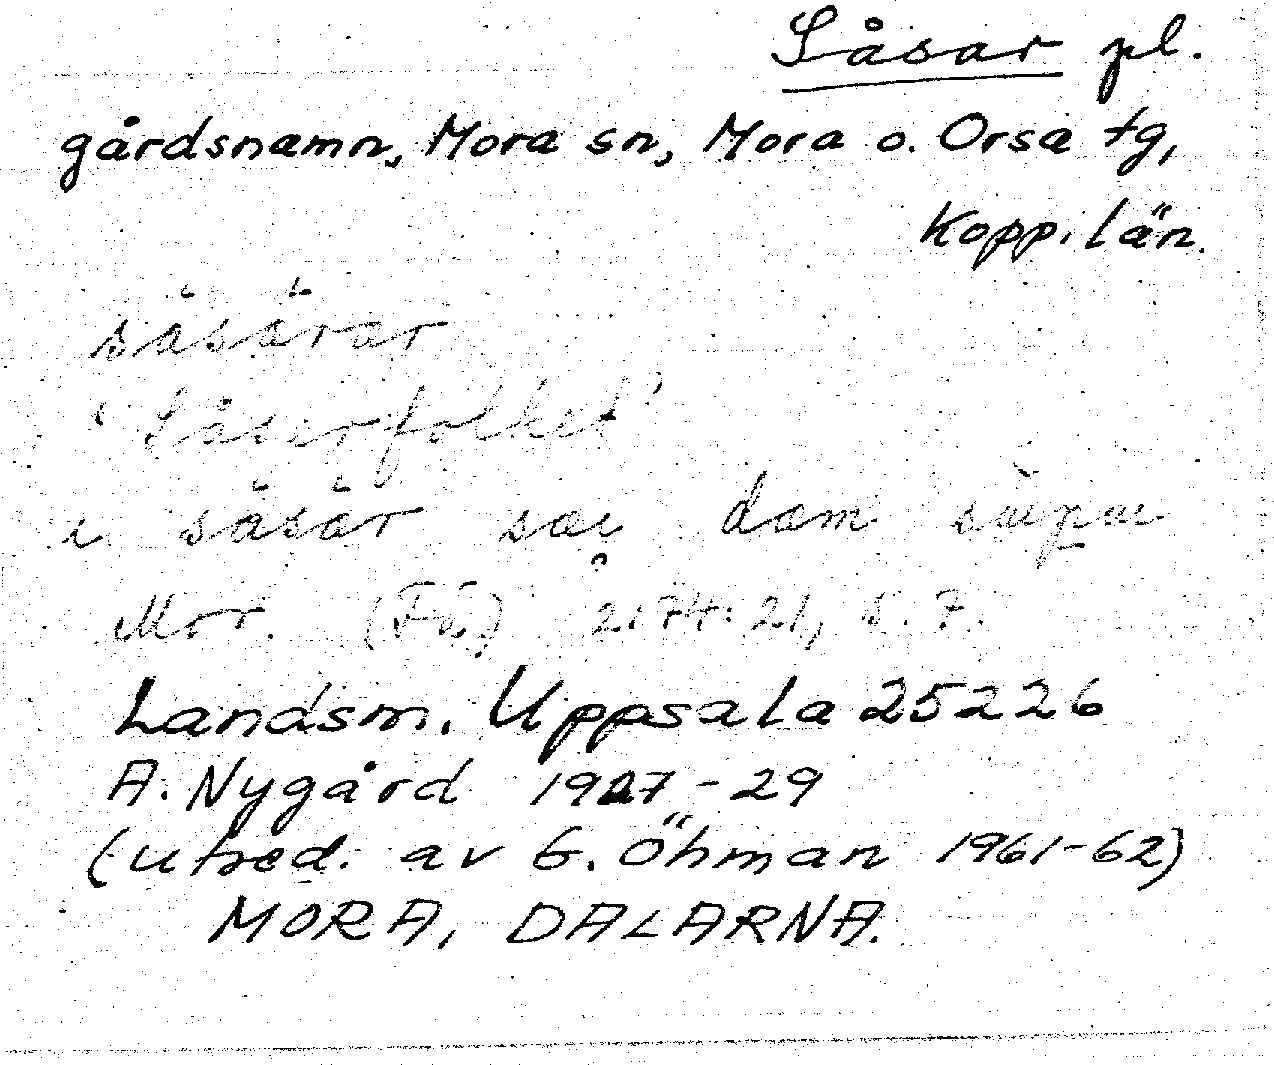 Såsar pl.
gårdsnamn, Mora sn, Mora o. Orsa tg,
Kopp. län.
såsårar
'Såserfolket'
i såsår sæi dom
Mor. (Få) 2174:21, s. 7.
Landsm. Uppsala 25226
A. Nygård 1927-29
(utred. av G. Öhman 1961-62)
MORA, DALARNA.